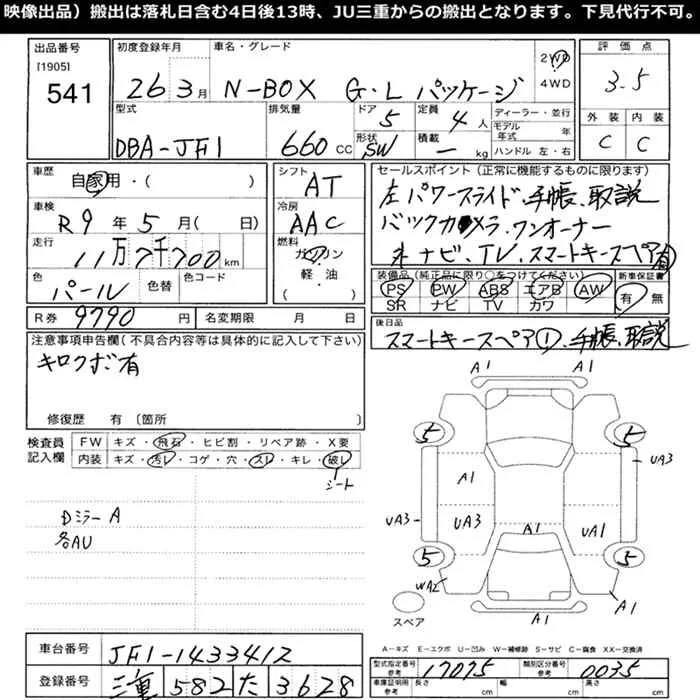 映像出品）搬出は落札日含む4日後13時、JU三重からの搬出となります。下見代行不可。
出品番号
[1905]
541
初度登録年月
26 3月
車名・グレード
N-BOX G・L パッケージ
2WD
4WD
評価点
3.5
外装 内装
C C
型式
DBA-JF1
排気量
660 CC
ドア
5
形状
SW
定員
4 人
積載
— kg
ディーラー・並行
モデル年式 年
ハンドル 左・右
車歴
自家用・( )
車検
R9年5月( 日)
走行
11万7千700km
色
パール
色替
色コード
R券 9790円
名変期限 月 日
シフト
AT
冷房
AAC
燃料
ガソリン
軽・油
( )
セールスポイント（正常に機能するものに限ります）
左パワースライド、手帳、取説
バックカメラ、ワンオーナー
ナビ、TV、スマートキースペア有
装備品（純正品に限り○をつけてください）
PS PW ABS エアB AW
SR ナビ TV カワ
新車保証書
有 無
後日品
スマートキースペア①、手帳、取説
注意事項申告欄（不具合内容等は具体的に記入して下さい）
キロクボ有
修復歴 有 〔箇所
検査員
記入欄
FW キズ・飛石・ヒビ割・リペア跡・X要
内装 キズ・汚レ・コゲ・穴・スレ・キレ・破レ
シート
Dミラー A
各AU
A1
A1
5
5
UA3
A1
UA3
UA3
A1
UA1
5
5
WA2
A1
A1
スペア
A－キズ E－エクボ U－凹み W－補修跡 S－サビ C－腐食 XX－交換済
車台番号 JF1-1433412
登録番号 三重 582 た 3628
型式指定番号
参考
17075
類別区分番号
参考
0035
車庫証明用
参考
長さ cm
幅 cm
高さ cm